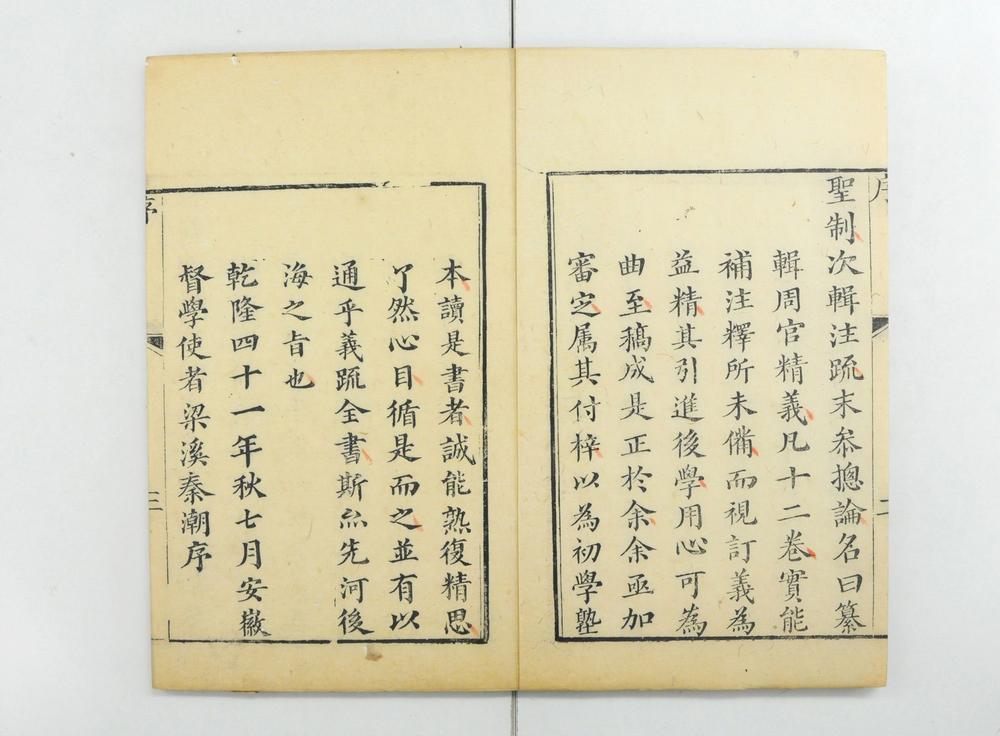 序
聖制次輯注疏末叅摠論名曰纂
輯周官精義凡十二卷實能
補注釋所未備而視訂義為
益精其引進後學用心可為
曲至稿成是正於余余亟加
審定属其付梓以為初學塾
二
本讀是書者誠能熟復精思
了然心目循是而之並有以
通乎義疏全書斯亦先河後
海之旨也
乾隆四十一年秋七月安徽
督學使者梁溪秦潮序
序
三